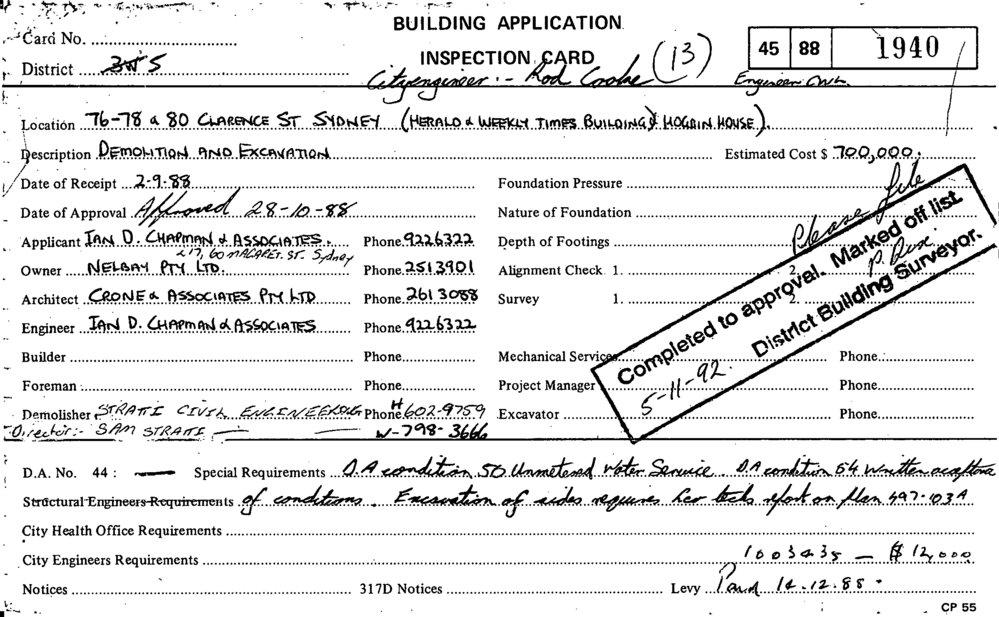 BUILDING APPLICATION
Card No.
INSPECTION CARD (13) 45 88 1940
District 3W5
City engineer :- Rod Cooke Engineer CWh.
Location 76-78 & 80 CLARENCE ST SYDNEY (HERALD & WEEKLY TIMES BUILDING & HOGBIN HOUSE).
Description DEMOLITION AND EXCAVATION Estimated Cost $ 700,000.
Date of Receipt 2-9-88 Foundation Pressure
Please file
Date of Approval Approved 28-10-88 Nature of Foundation
Applicant IAN D. CHAPMAN & ASSOCIATES. Phone 9226322 Depth of Footings
L17, 60 MARGARET. ST. Sydney
Owner NELBAY PTY LTD. Phone 2513901 Alignment Check 1. 2.
Architect CRONE & ASSOCIATES PTY LTD Phone 2613088 Survey 1. 2.
Engineer IAN D. CHAPMAN & ASSOCIATES Phone 9226322
Completed to approval. Marked off list.
5-11-92. District Building Surveyor.
Builder Phone Mechanical Services Phone
Foreman Phone Project Manager Phone
Demolisher STRATTI CIVIL ENGINEERING Phone H 602-9759 Excavator Phone
Director:- SAM STRATTI W-798-3666
D.A. No. 44 : — Special Requirements D.A condition 50 Unmetered Water Service. D.A condition 54 written acceptance
Structural Engineers Requirements of conditions. Excavation of sides requires Geo tech report on plan 497-103A
City Health Office Requirements
City Engineers Requirements 1003435 — $12,000
Notices 317D Notices Levy Paid 14.12.88.
CP 55